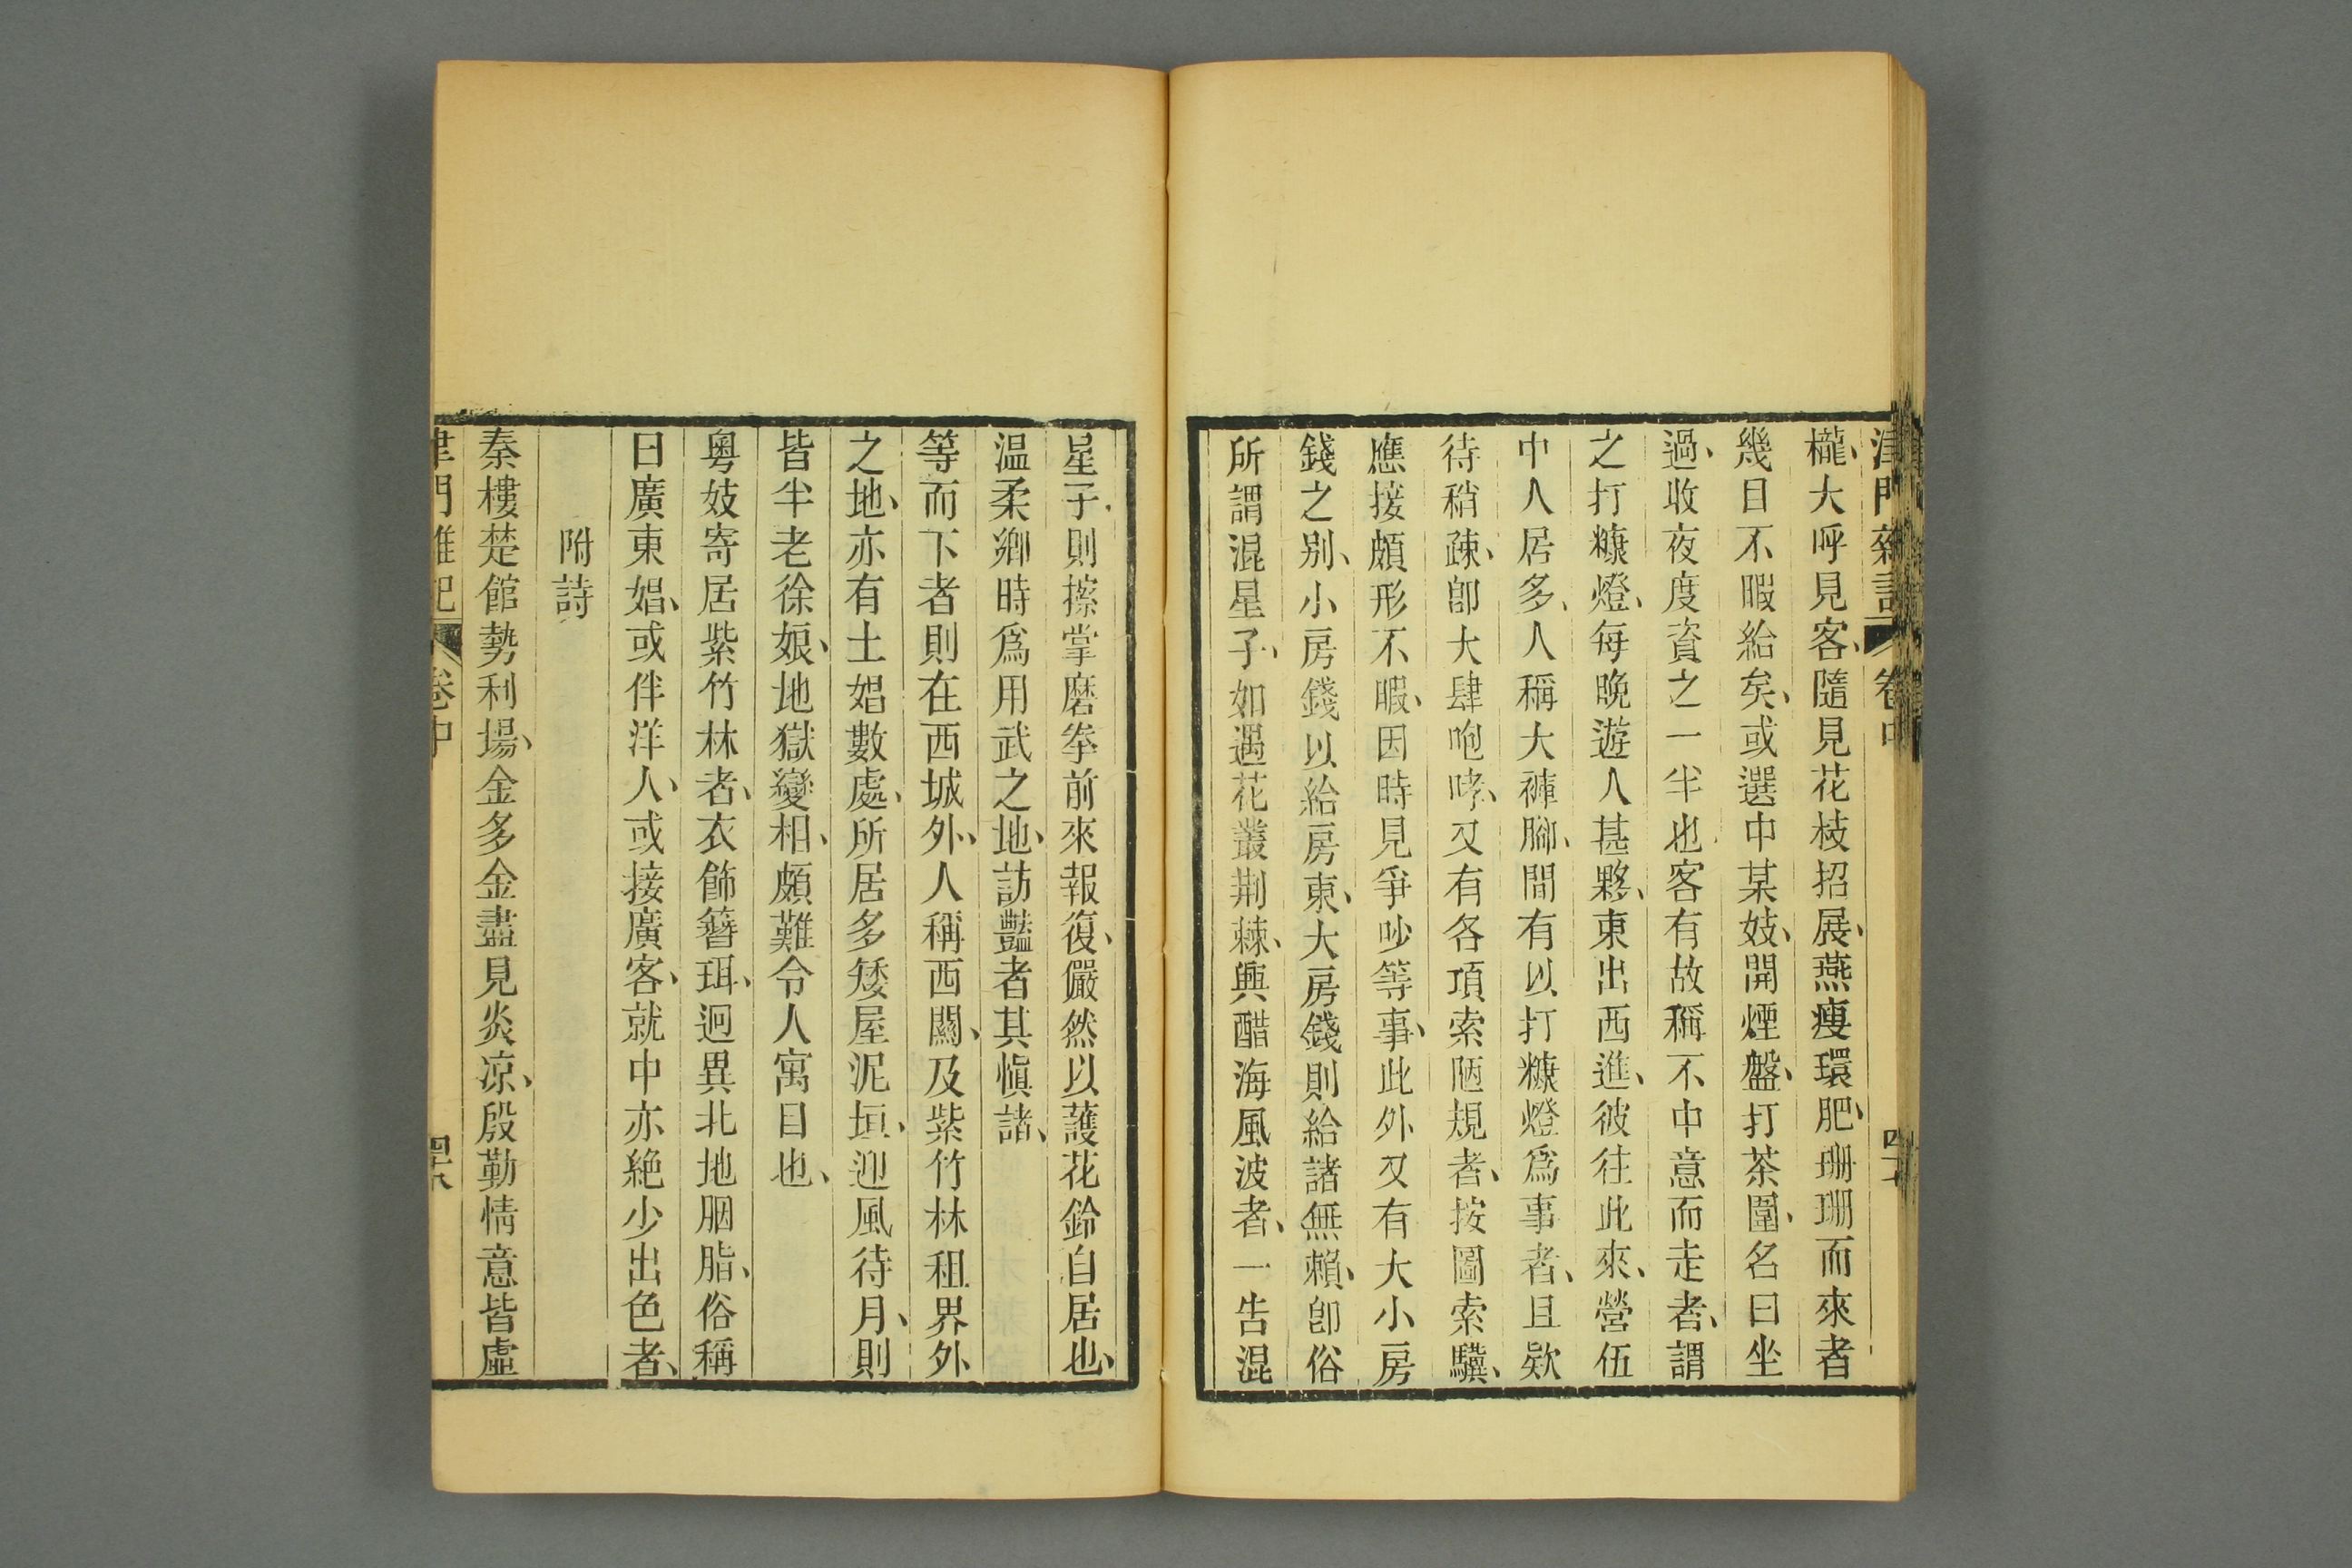 津門雜記 卷中
櫳、大呼見客、隨見花枝招展、燕瘦環肥、珊珊而來者
幾目不暇給矣、或選中某妓、開煙盤、打茶圍、名曰坐
過、收夜度資之一半也、客有故稱不中意而走者、謂
之打糠燈、每晚遊人甚夥、東出西進、彼往此來、營伍
中人居多、人稱大褲腳、間有以打糠燈爲事者、且欵
待稍疎、卽大肆咆哮、又有各項索陋規者、按圖索驥、
應接頗形不暇、因時見爭吵等事、此外又有大小房
錢之别、小房錢以給房東、大房錢則給諸無賴、卽俗
所謂混星子、如遇花叢荆棘、與醋海風波者、一告混
星子、則擦掌磨拳前來報復、儼然以護花鈴自居也、
温柔鄉時爲用武之地、訪豔者其愼諸、
等而下者則在西城外、人稱西關、及紫竹林租界外
之地、亦有土娼數處、所居多矮屋泥垣、迎風待月、則
皆半老徐娘、地獄變相、頗難令人寓目也、
粤妓寄居紫竹林者、衣飾簪珥、迥異北地胭脂、俗稱
曰廣東娼、或伴洋人、或接廣客、就中亦絶少出色者、
附詩
秦樓楚館勢利場、金多金盡見炎凉、殷勤情意皆虛
津門雜記 卷中 四六